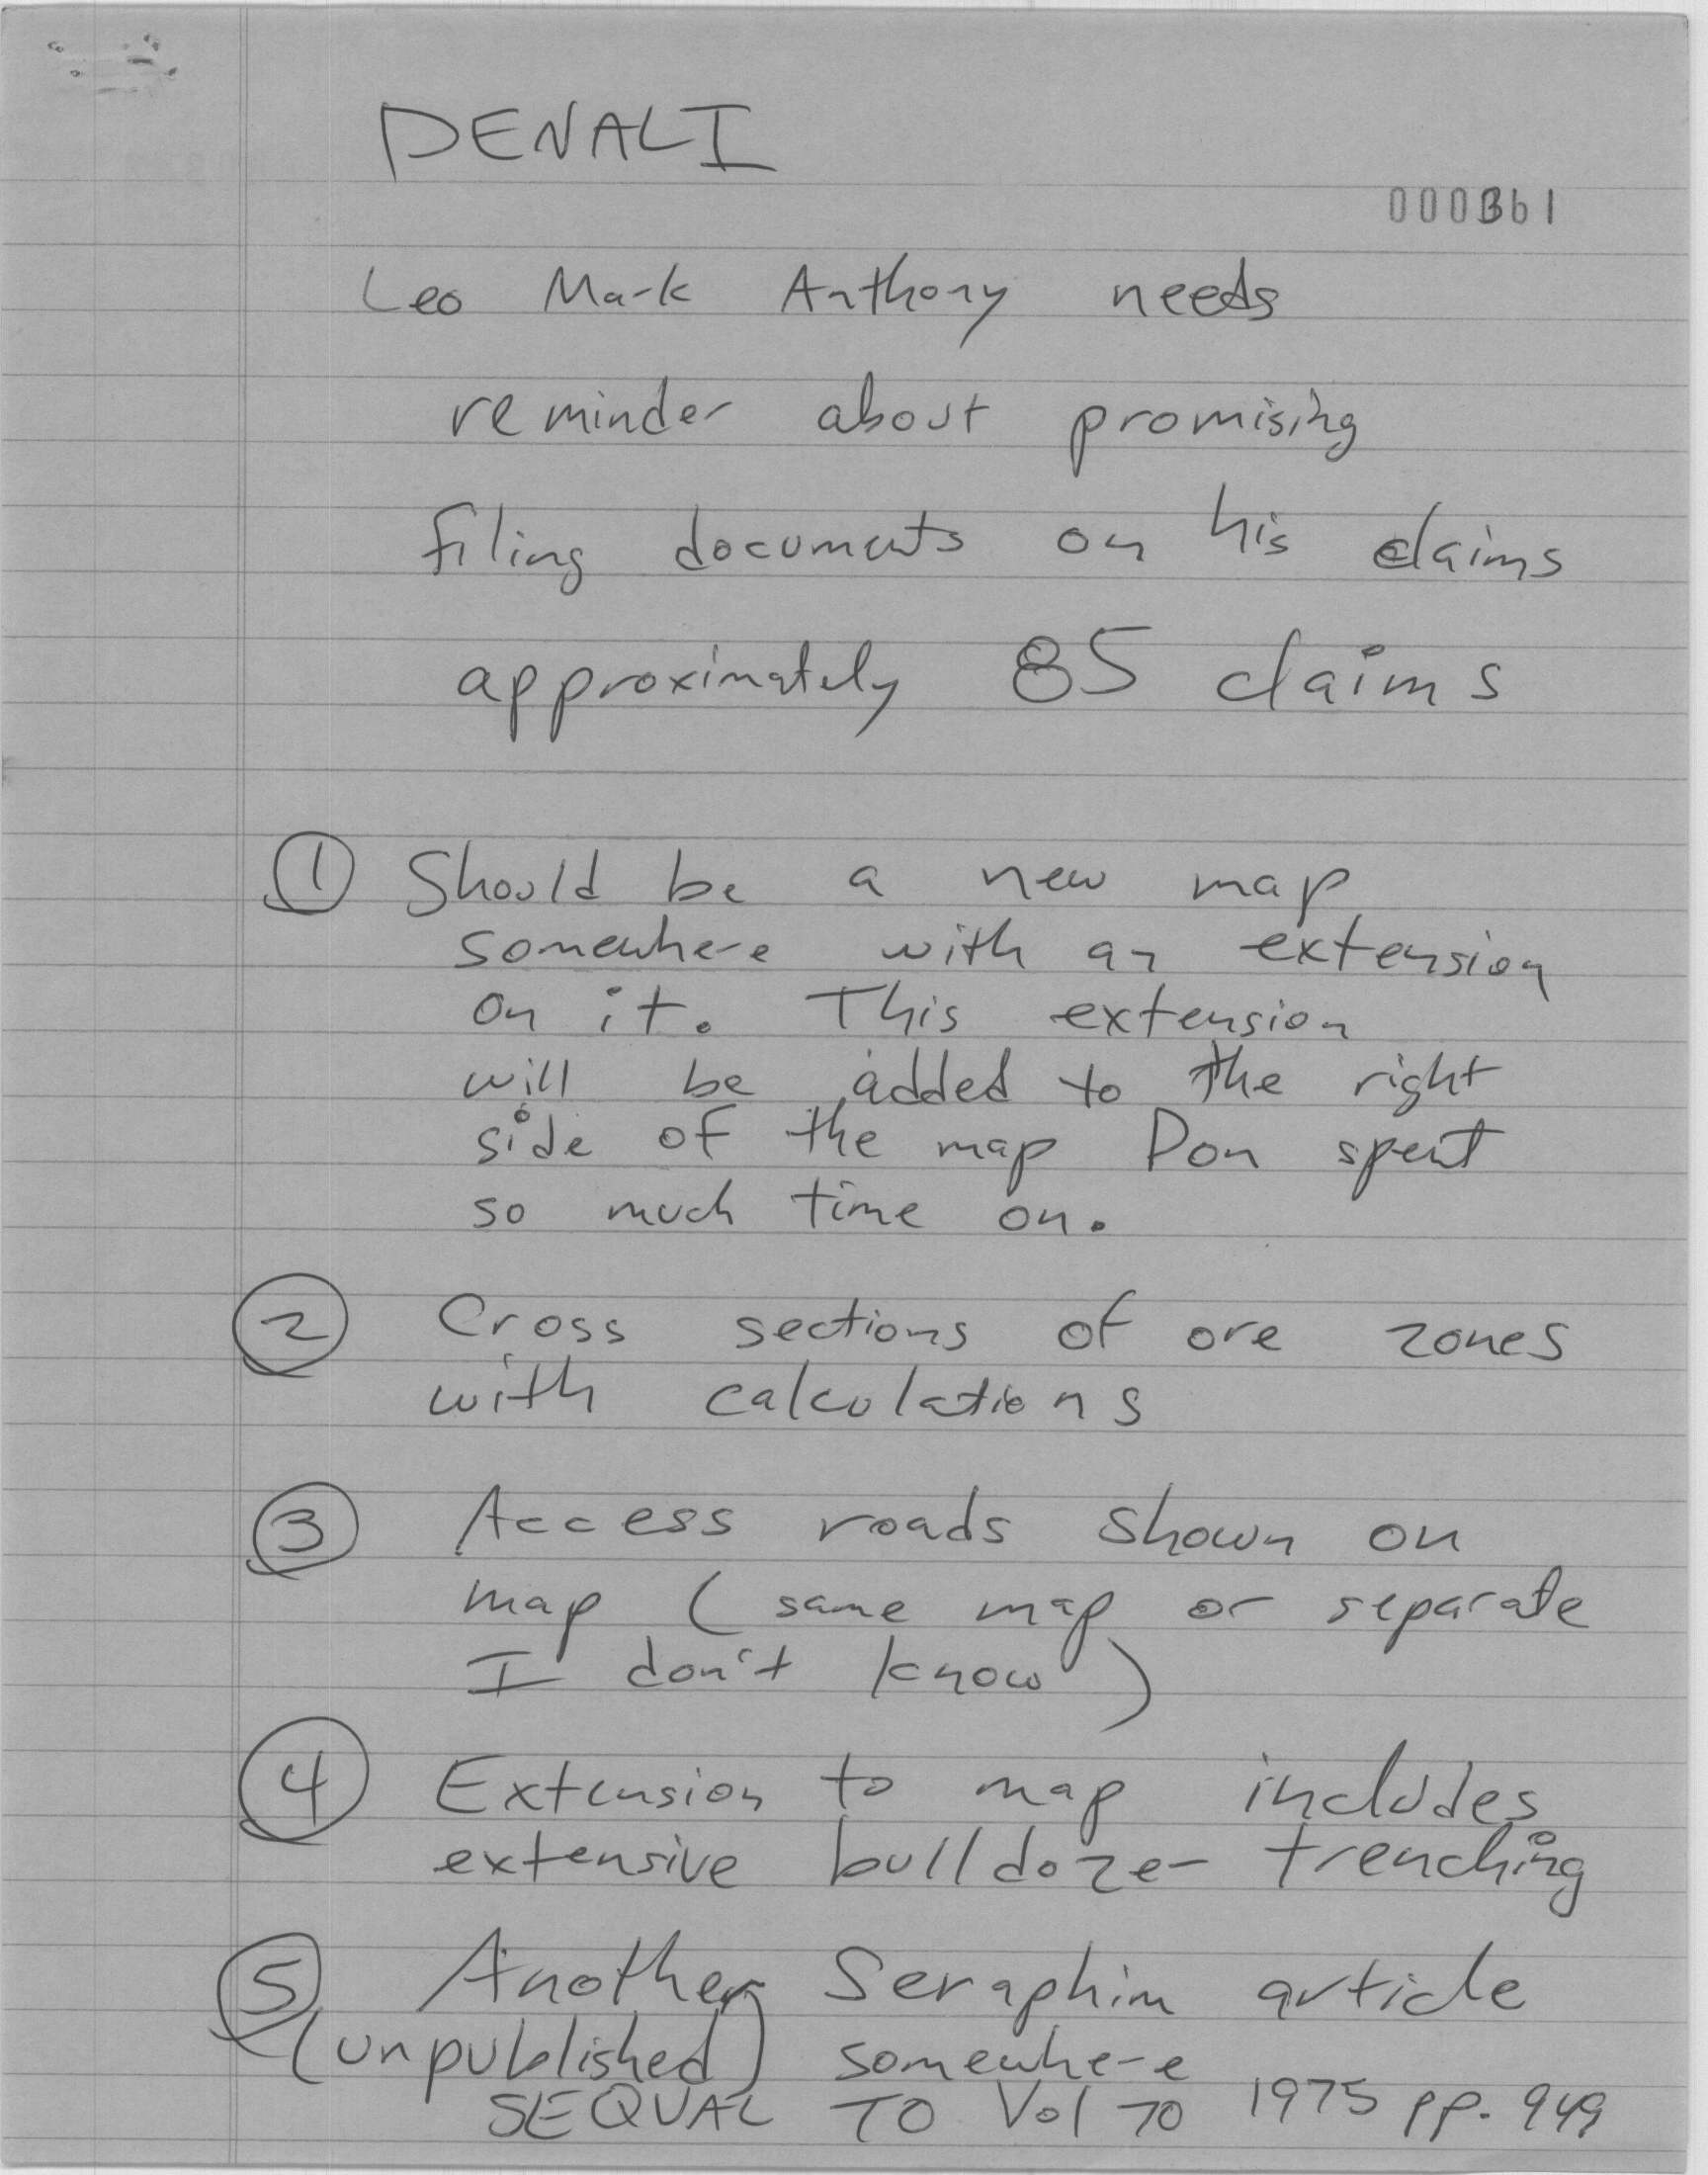 DENALI
000361
Leo Mark Anthony needs
reminder about promising
filing documents on his claims
approximately 85 claims
① Should be a new map
somewhere with an extension
on it. This extension
will be added to the right
side of the map Don spent
so much time on.
② Cross sections of ore zones
with calculations
③ Access roads shown on
map (same map or separate
I don't know)
④ Extension to map includes
extensive bulldozer trenching
⑤ Another Seraphim article
(unpublished) somewhere
SEQUAL TO Vol 70 1975 pp. 949